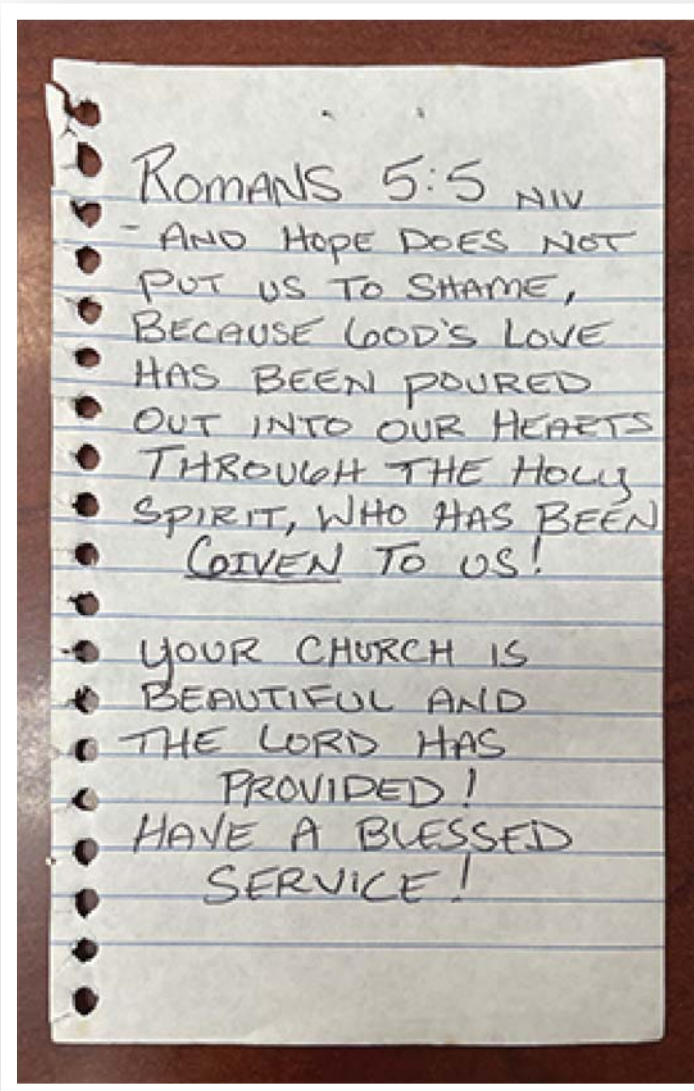 ROMANS 5:5 NIV
- AND HOPE DOES NOT
PUT US TO SHAME,
BECAUSE GOD'S LOVE
HAS BEEN POURED
OUT INTO OUR HEARTS
THROUGH THE HOLY
SPIRIT, WHO HAS BEEN
GIVEN TO US!
YOUR CHURCH IS
BEAUTIFUL AND
THE LORD HAS
PROVIDED!
HAVE A BLESSED
SERVICE!